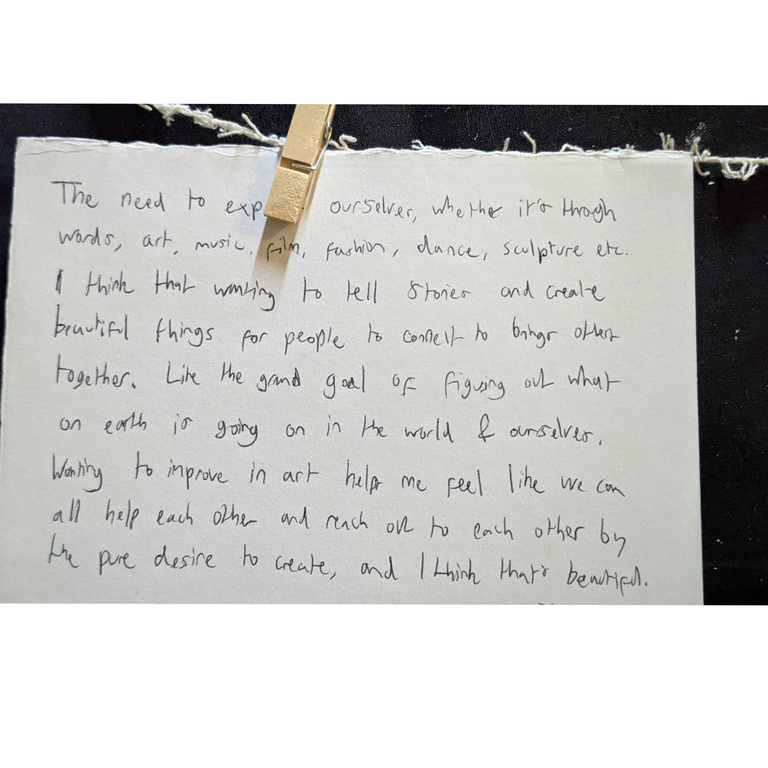 The need to exp ourselves, whether it's through
words, art, music, film, fashion, dance, sculpture etc.
I think that wanting to tell stories and create
beautiful things for people to connect to brings others
together. Like the grand goal of figuring out what
on earth is going on in the world & ourselves.
Wanting to improve in art helps me feel like we can
all help each other and reach out to each other by
the pure desire to create, and I think that's beautiful.